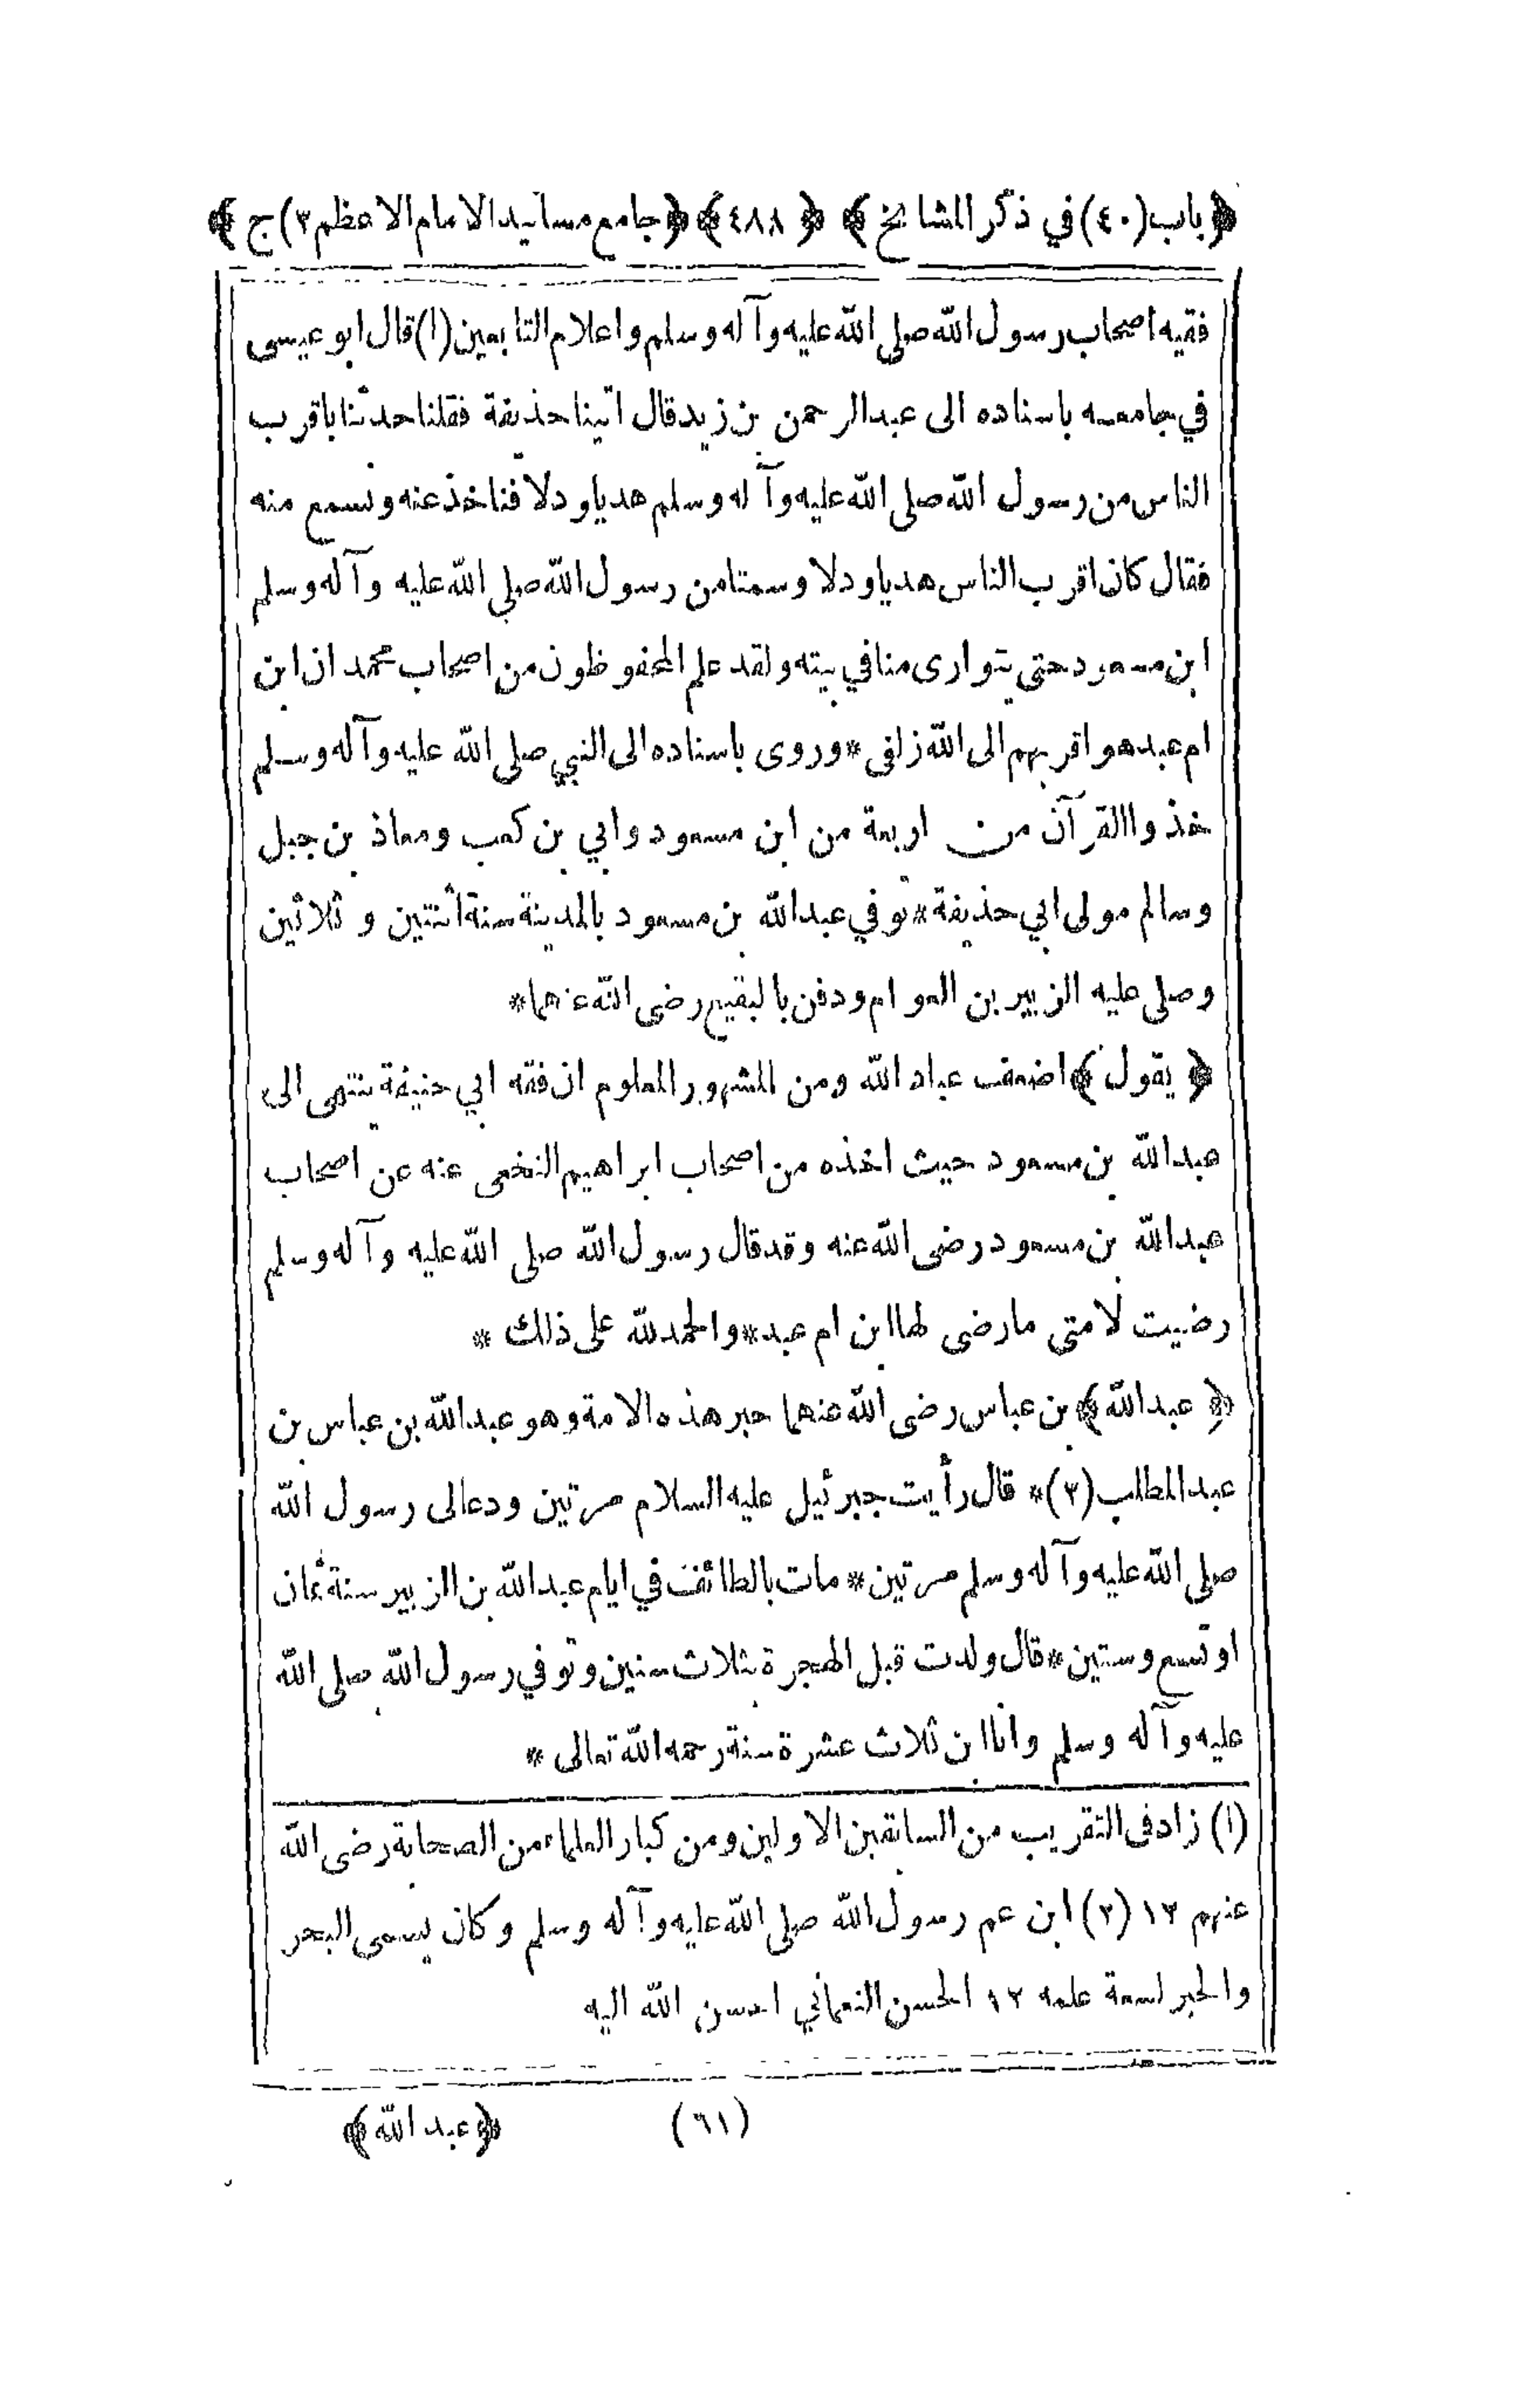 ﴿ باب (٤٠) في ذكر المشايخ ﴾ ﴿ ٤٨٨ ﴾ ﴿ جامع مسانيد الامام الاعظم ٢) ج ﴾
فقيه اصحاب رسول الله صلى الله عليه وآله وسلم واعلام التابعين (١) قال ابو عيسى
في جامعه باسناده الى عبد الرحمن بن زيد قال اتينا حذيفة فقلنا حدثنا باقرب
الناس من رسول الله صلى الله عليه وآله وسلم هديا ودلا فناخذ عنه ونسمع منه
فقال كان اقرب الناس هديا ودلا وسمتا من رسول الله صلى الله عليه وآله وسلم
ابن مسعود حتى يتوارى منا في بيته ولقد علم المحفوظون من اصحاب محمد ان ابن
ام عبد هو اقربهم الى الله زلفى * وروى باسناده الى النبي صلى الله عليه وآله وسلم
خذوا القرآن من اربعة من ابن مسعود وابي بن كعب ومعاذ بن جبل
وسالم مولى ابي حذيفة * توفي عبد الله بن مسعود بالمدينة سنة أثنتين وثلاثين
وصلى عليه الزبير بن العوام ودفن بالبقيع رضى الله عنهما *
﴿ يقول ﴾ اضعف عباد الله ومن المشهور المعلوم ان فقه ابي حنيفة ينتهى الى
عبد الله بن مسعود حيث اخذه من اصحاب ابراهيم النخعى عنه عن اصحاب
عبد الله بن مسعود رضى الله عنه وقد قال رسول الله صلى الله عليه وآله وسلم
رضيت لامتى مارضى لها ابن ام عبد * والحمد لله على ذلك *
﴿ عبد الله ﴾ بن عباس رضى الله عنهما حبر هذه الامة وهو عبد الله بن عباس بن
عبد المطلب (٢) * قال رأيت جبرئيل عليه السلام مرتين ودعالى رسول الله
صلى الله عليه وآله وسلم مرتين * مات بالطائف في ايام عبد الله بن الزبير سنة ثمان
او تسع وستين * قال ولدت قبل الهجرة بثلاث سنين وتوفي رسول الله صلى الله
عليه وآله وسلم وانا ابن ثلاث عشرة سنة رحمه الله تعالى *
(١) زاد فى التقريب من السابقين الاولين ومن كبار العلماء من الصحابة رضى الله
عنهم ١٢ (٢) ابن عم رسول الله صلى الله عليه وآله وسلم وكان يسمى البحر
والحبر لسعة علمه ١٢ الحسن النعماني احسن الله اليه
(٦١) ﴿ عبد الله ﴾